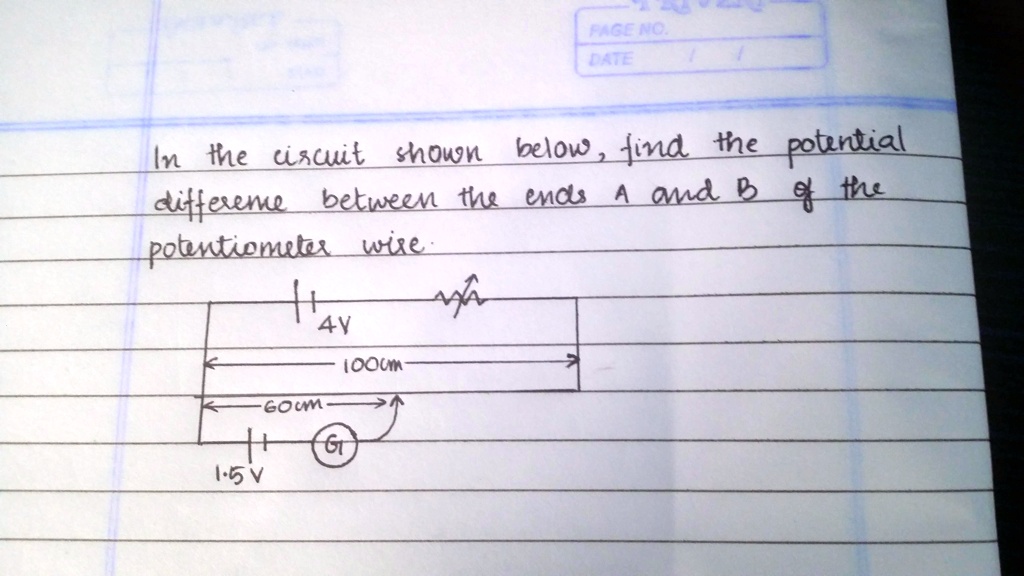 PAGE NO.
DATE / /
In the circuit shown below, find the potential
difference between the ends A and B of the
potentiometer wire.
4V
100cm
60cm
G
1.5 V